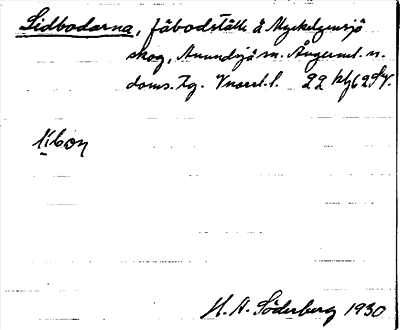 Lidbodarna, fäbodställe å Myckelgensjö
skog, Anundsjö sn. Ångerml. n.
doms. tg. Vnorrl. l. 22
H. A. Söderberg 1930